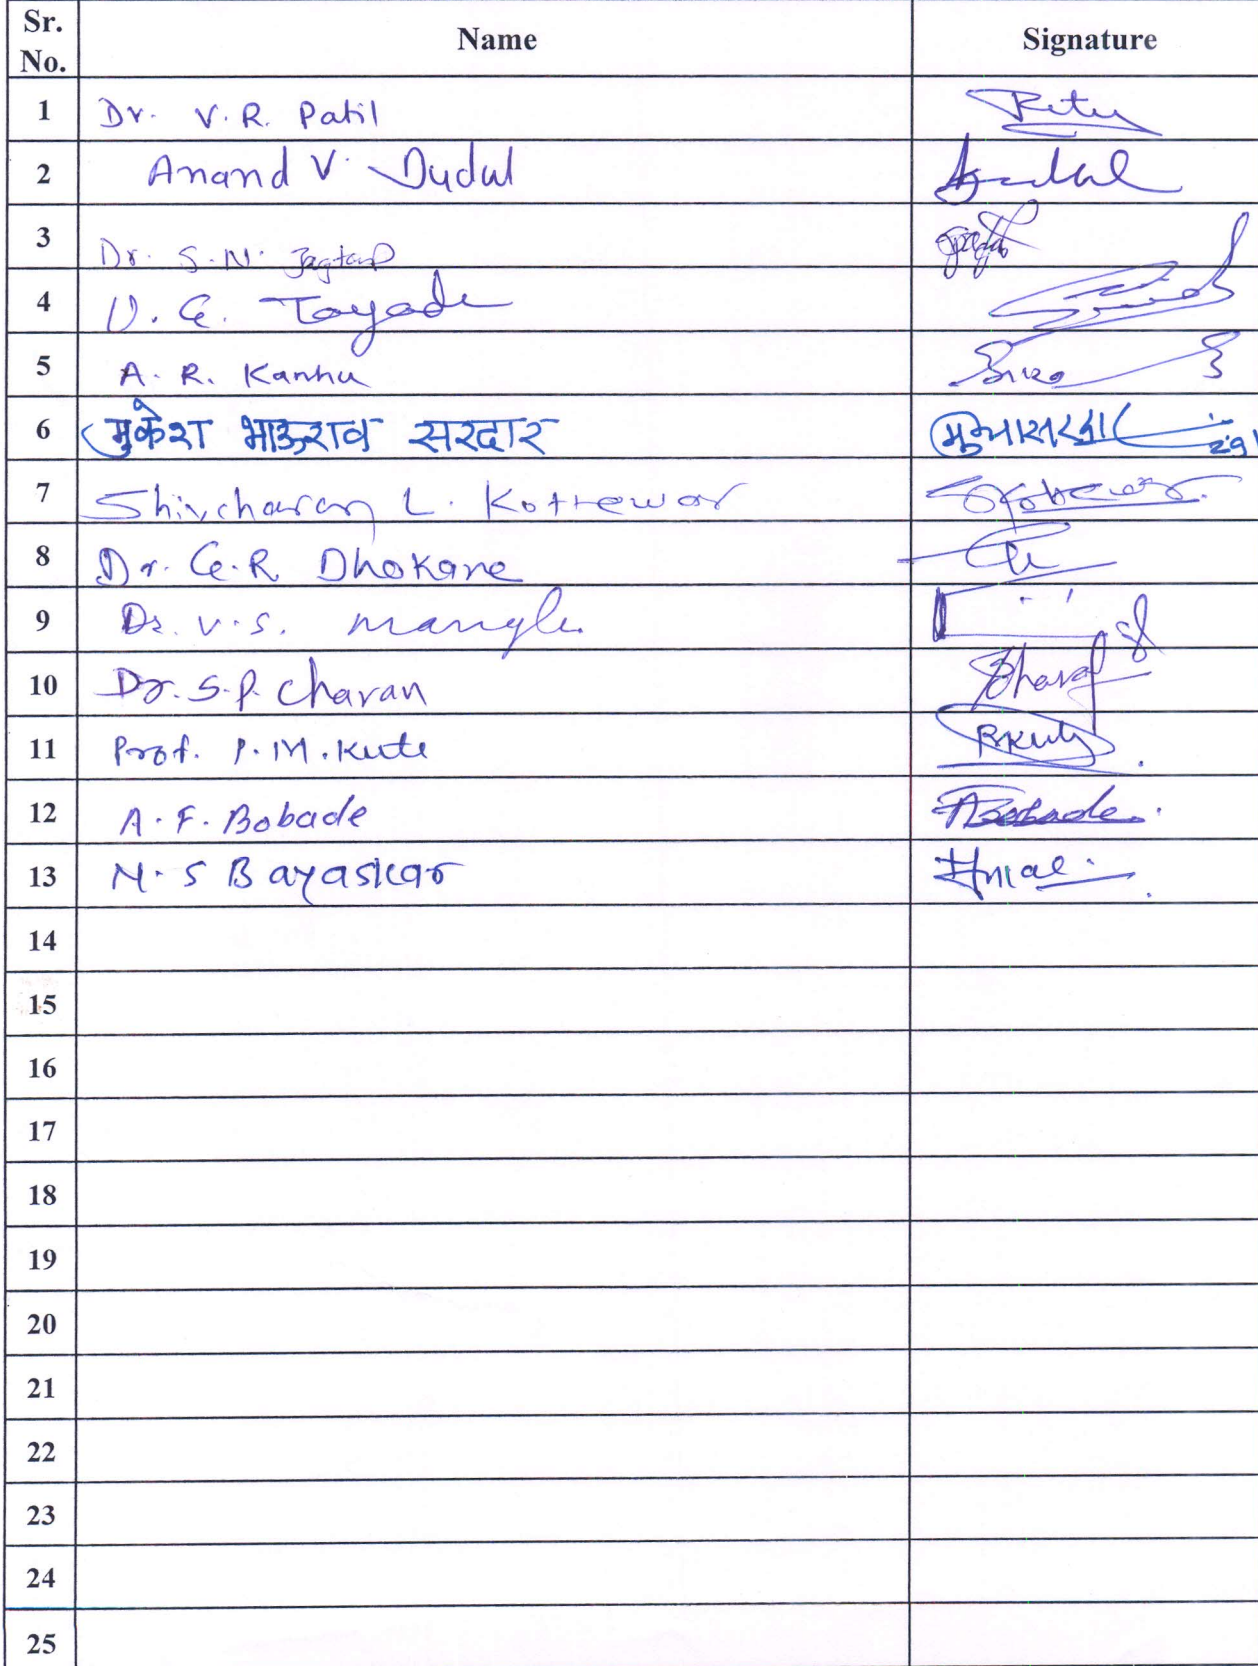 Sr. No. Name Signature
1 Dr. V.R. Patil
2 Anand V. Dudul
3 Dr. S.N. Jagtap
4 V. G. Tayade
5 A. R. Kanhu
6 मुकेश भाऊराव सरदार
7 Shivcharan L. Kottewar
8 Dr. G.R Dhokane
9 Dr. V.S. mangle
10 Dr. S.P. Chavan
11 Prof. P.M. Kute RKute
12 A.F. Bobade ABobade.
13 N.S Bayaskar
14
15
16
17
18
19
20
21
22
23
24
25